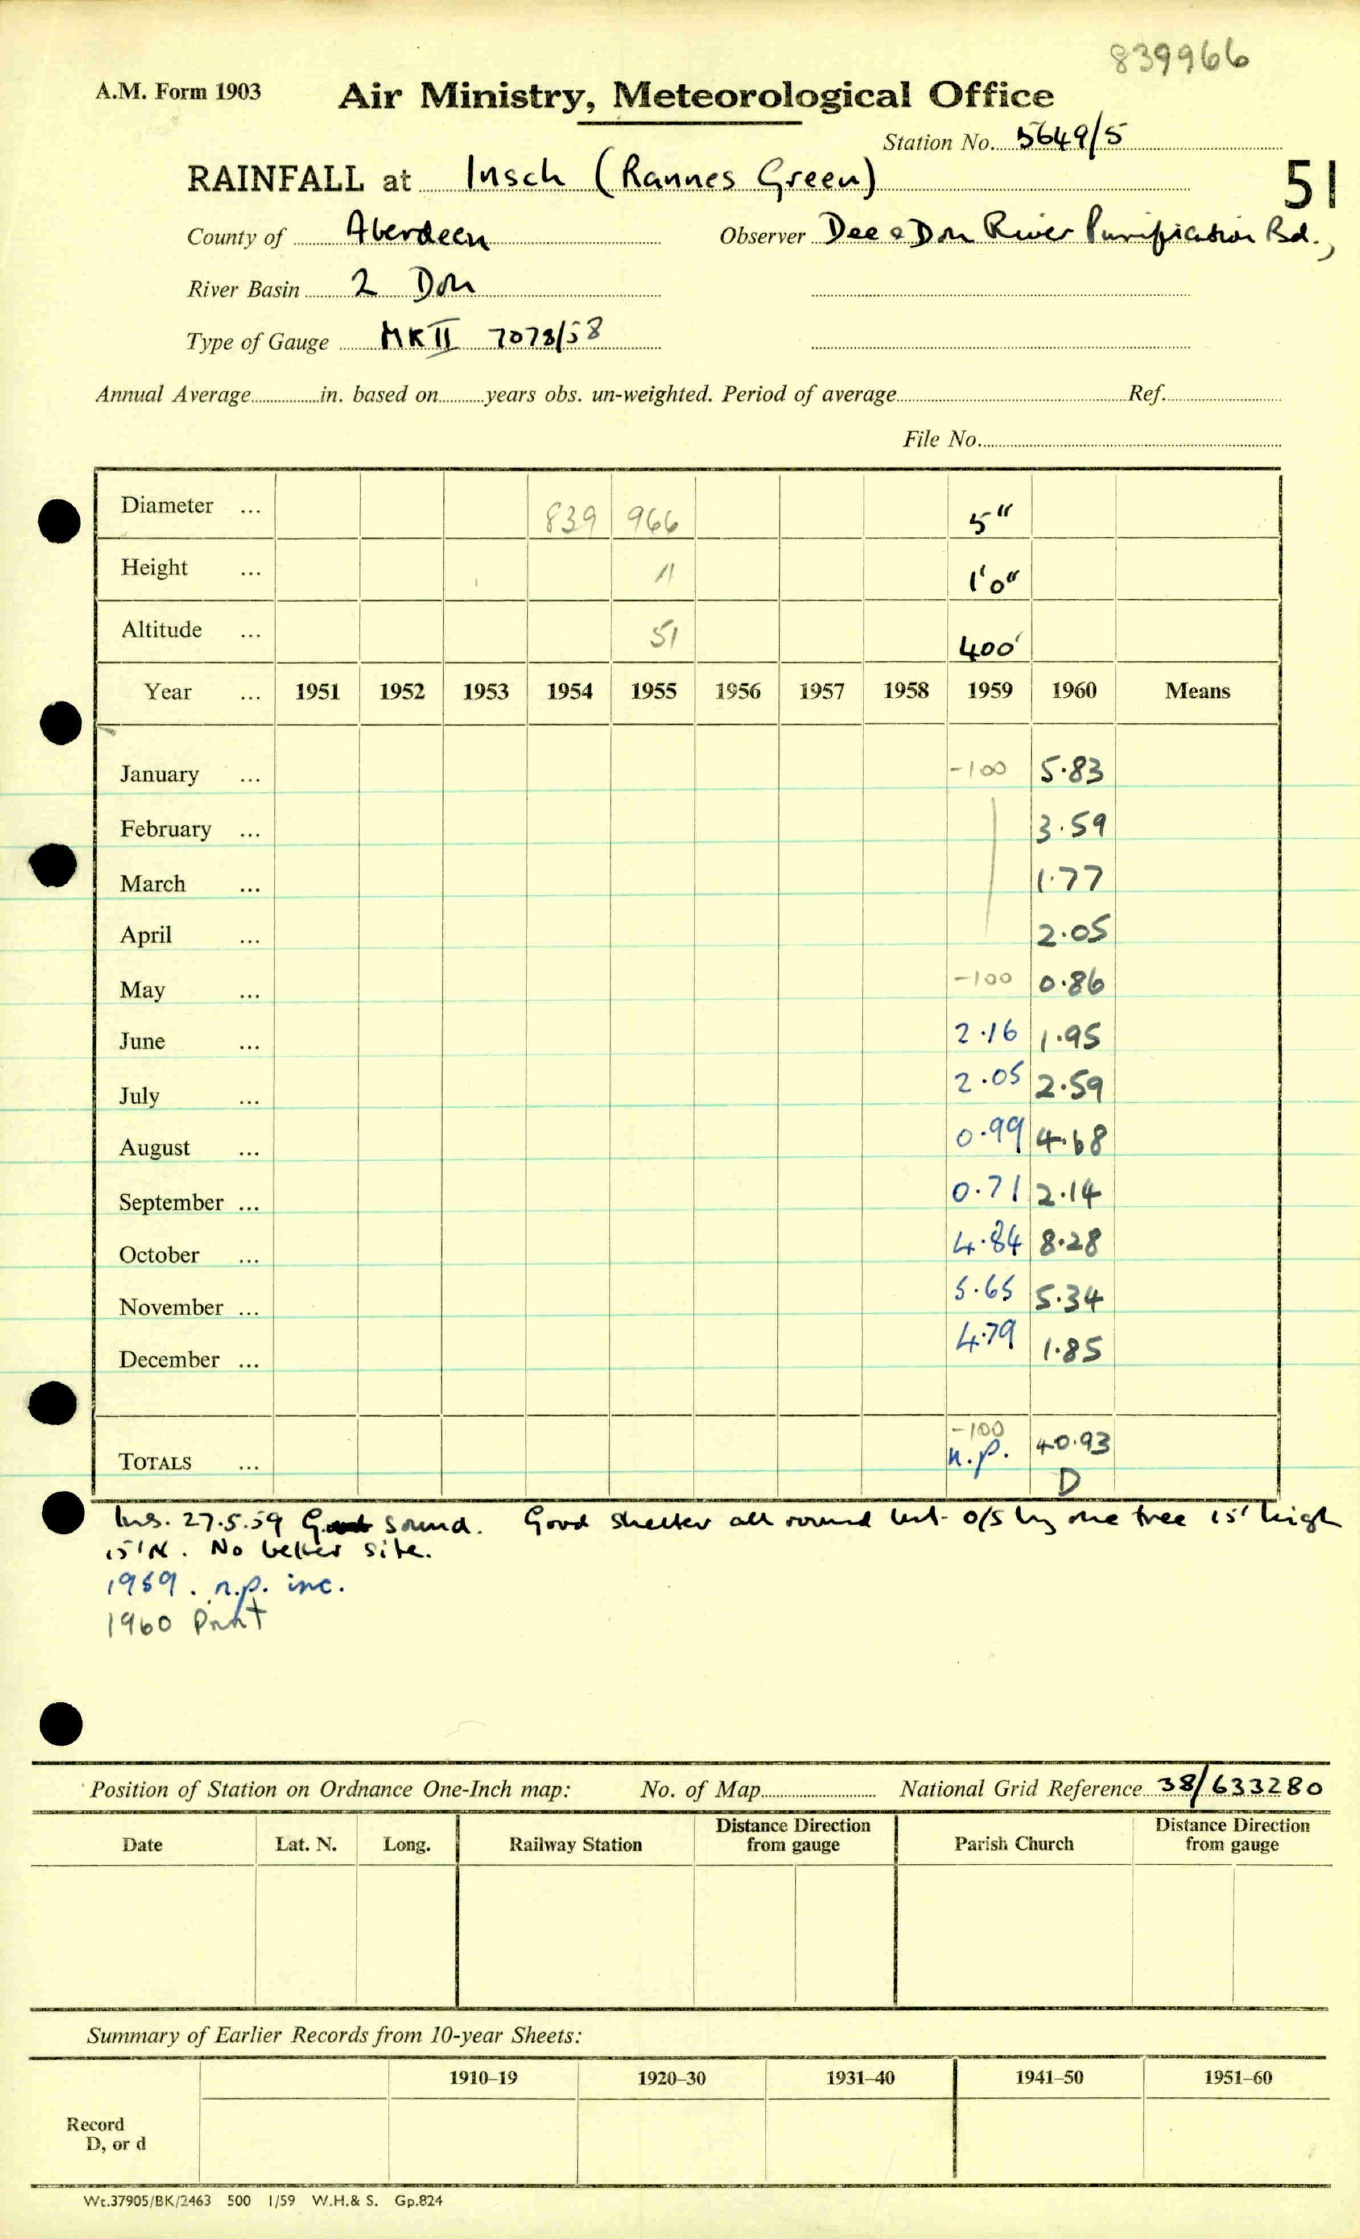 839966
A.M. Form 1903 Air Ministry, Meteorological Office
Station No. 5649/5
RAINFALL at Insch (Rannes Green) 51
County of Aberdeen Observer Dee & Don River Purification Bd.,
River Basin 2 Don
Type of Gauge MK II 7073/58
Annual Average in. based on years obs. un-weighted. Period of average Ref.
File No.
Diameter ... 839 966 5"
Height ... 11 1'0"
Altitude ... 51 400'
Year ... 1951 1952 1953 1954 1955 1956 1957 1958 1959 1960 Means
January ... -100 5.83
February ... 3.59
March ... 1.77
April ... 2.05
May ... -100 0.86
June ... 2.16 1.95
July ... 2.05 2.59
August ... 0.99 4.68
September ... 0.71 2.14
October ... 4.84 8.28
November ... 5.65 5.34
December ... 4.79 1.85
-100
TOTALS ... n.p. 40.93
D
Ins. 27.5.59 Sound. Good shelter all round but o/s by one tree 15' high
15'N. No better site.
1959. n.p. inc.
1960 Print
Position of Station on Ordnance One-Inch map: No. of Map National Grid Reference 38/633280
Date Lat. N. Long. Railway Station Distance Direction from gauge Parish Church Distance Direction from gauge
Summary of Earlier Records from 10-year Sheets:
1910–19 1920–30 1931–40 1941–50 1951–60
Record
D, or d
Wt.37905/BK/2463 500 1/59 W.H.& S. Gp.824